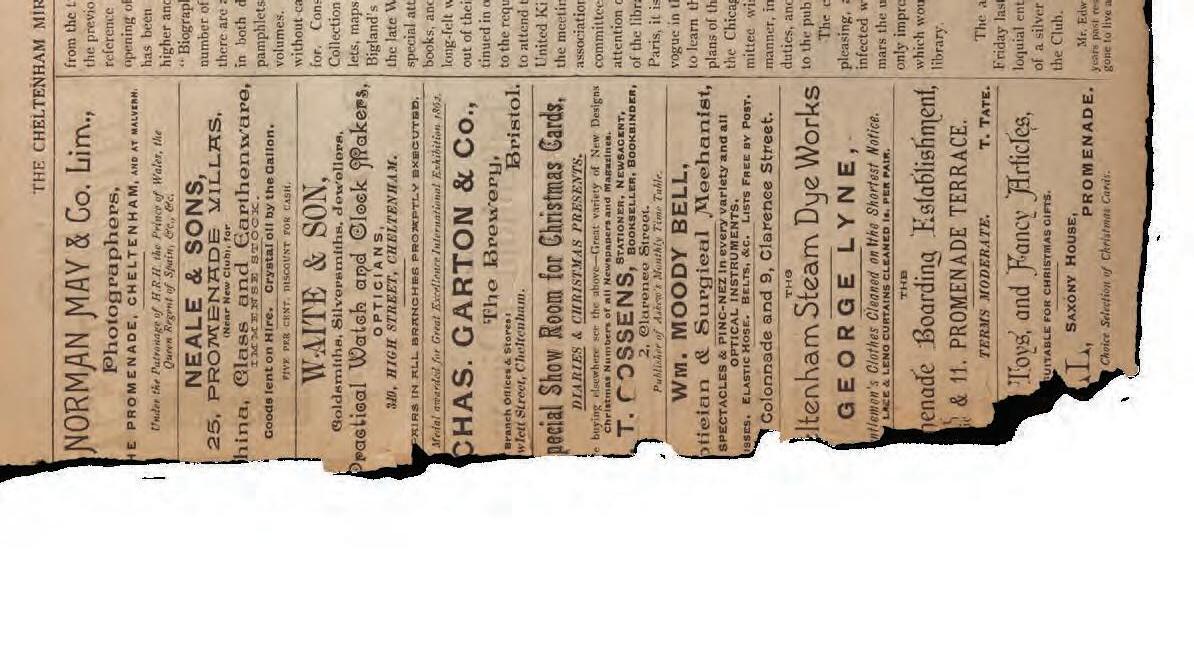 THE CHELTENHAM MIR
NORMAN MAY & Co. Lim.,
Photographers,
HE PROMENADE, CHELTENHAM, AND AT MALVERN.
Under the Patronage of H.R.H. the Prince of Wales, the
Queen Regent of Spain, &c., &c.
NEALE & SONS,
25, PROMENADE VILLAS,
(Near New Club), for
hina, Glass and Earthenware,
IMMENSE STOCK.
Goods lent on Hire. Crystal Oil by the Gallon.
FIVE PER CENT. DISCOUNT FOR CASH.
WAITE & SON,
Goldsmiths, Silversmiths, Jewellers,
Practical Watch and Clock Makers,
OPTICIANS,
340, HIGH STREET, CHELTENHAM.
PAIRS IN ALL BRANCHES PROMPTLY EXECUTED.
Medal awarded for Great Excellence International Exhibition 1862.
CHAS. GARTON & Co.,
The Brewery,
Bristol.
Branch Offices & Stores:
wlett Street, Cheltenham.
pecial Show Room for Christmas Cards,
DIARIES & CHRISTMAS PRESENTS.
e buying elsewhere see the above—Great variety of New Designs
Christmas Numbers of all Newspapers and Magazines.
T. COSSENS, STATIONER, NEWSAGENT,
BOOKSELLER, BOOKBINDER,
2, Clarence Street.
Publisher of Askew's Monthly Time Table.
WM. MOODY BELL,
ptician & Surgical Mechanist,
SPECTACLES & PINC-NEZ in every variety and all
OPTICAL INSTRUMENTS.
USSES. ELASTIC HOSE. BELTS, &C. LISTS FREE BY POST.
Colonnade and 9, Clarence Street.
THE
ltenham Steam Dye Works
GEORGE LYNE,
ntlemen's Clothes Cleaned on the Shortest Notice.
LACE & LENO CURTAINS CLEANED 1s. PER PAIR.
THE
nenade Boarding Establishment,
& 11, PROMENADE TERRACE.
TERMS MODERATE. T. TATE.
Toys, and Fancy Articles,
SUITABLE FOR CHRISTMAS GIFTS.
SAXONY HOUSE,
L, PROMENADE.
Choice Selection of Christmas Cards.
from the t
the previo
reference
opening of
has been
higher and
"Biograph
number of
there are a
in both d
pamphlets
volumes.
without ca
for. Cons
Collection
lets, maps
Bigland's
the late W
special atte
books, and
long-felt w
out of thei
tinued in o
to the requ
to attend t
United Ki
the meetin
association
committee
attention o
of the libra
Paris, it is
vogue in th
to learn th
plans of th
the Chicag
mittee wis
manner, in
duties, and
to the pub
The c
pleasing, a
infected w
mars the u
only impre
which wou
library.
The a
Friday last
loquial ent
of a silver
the Club.
Mr. Edw
years past res
gone to live a